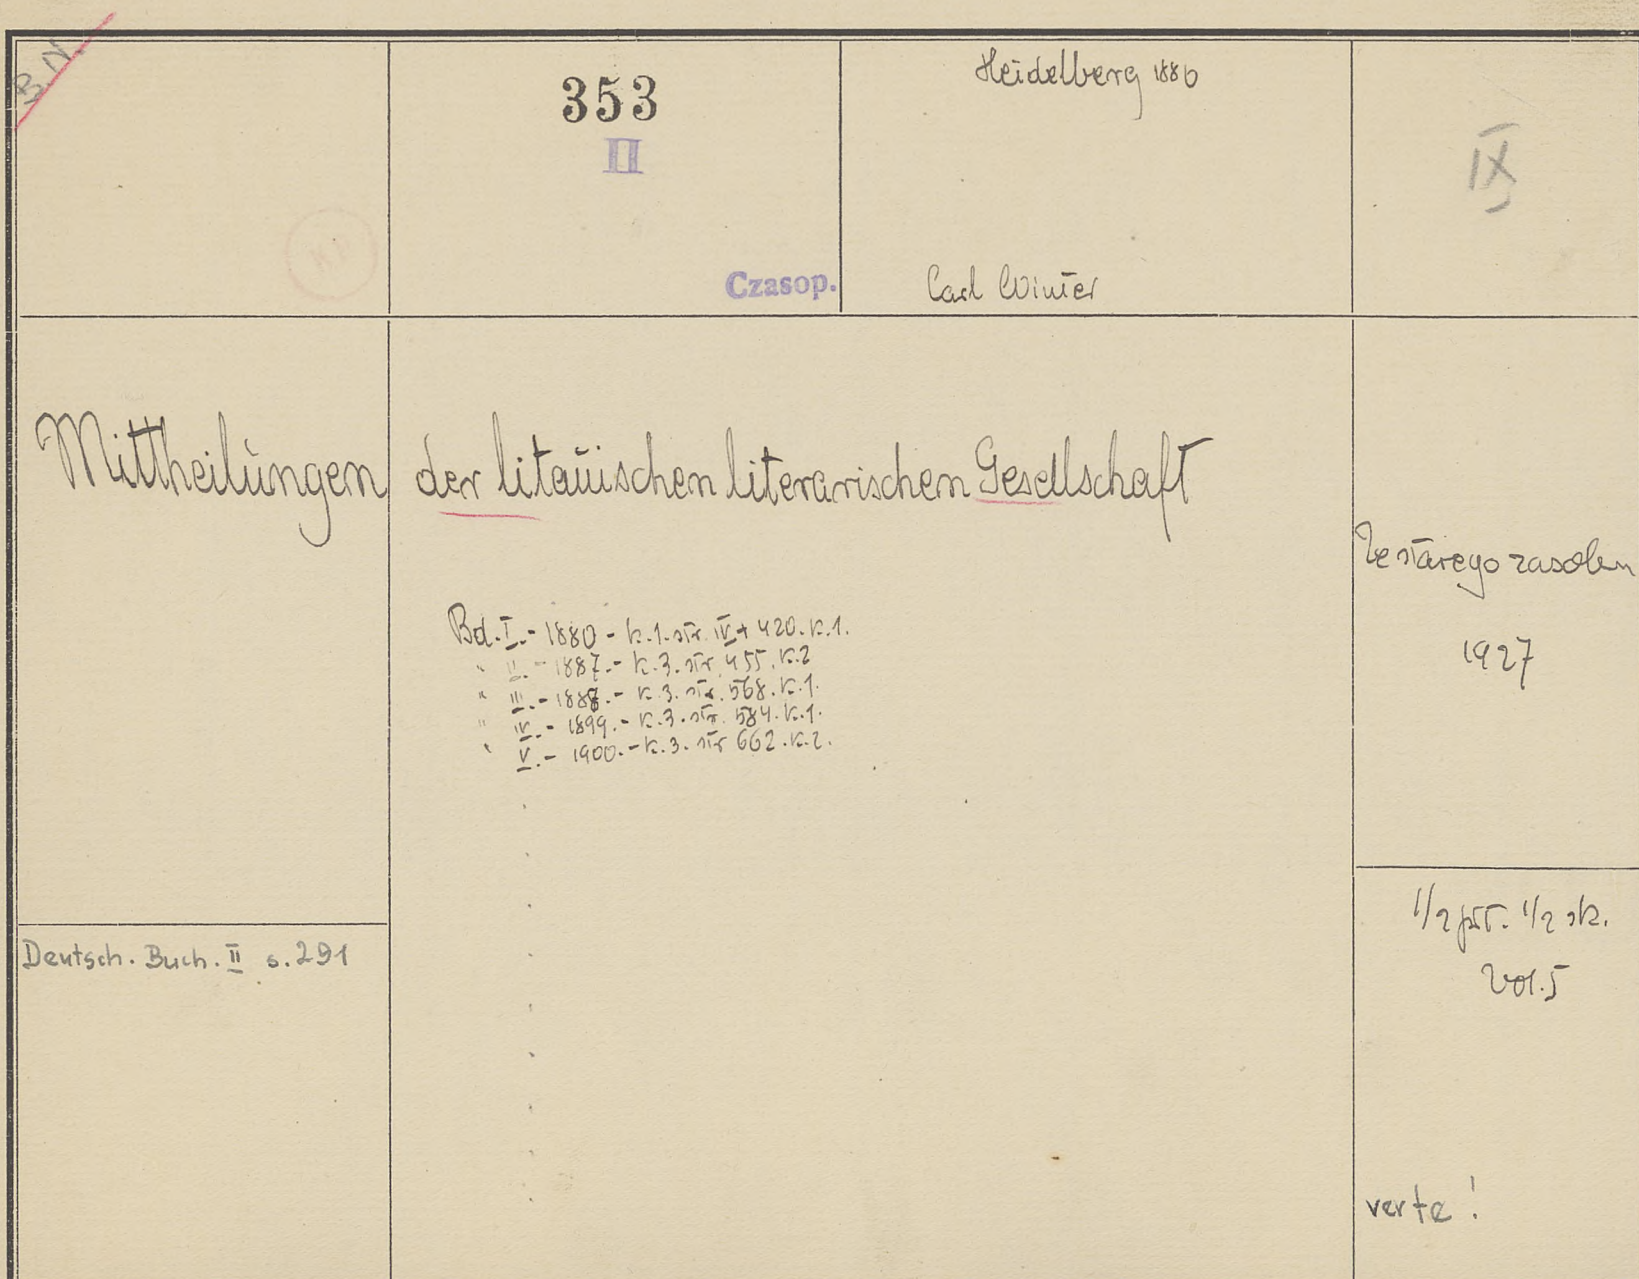 B.N.
353
II
Czasop.
Heidelberg 1880
Carl Winter
IX
Mittheilungen der litauischen literarischen Gesellschaft
Bd. I.- 1880 - k.1. str. IV + 420. k.1.
" II.- 1887.- k.3. str. 455. k.2
" III.- 1888.- k.3. str. 568. k.1.
" IV.- 1899.- k.3. str. 584. k.1.
" V.- 1900.- k.3. str 662. k.2.
Ze starego zasobu
1927
Deutsch. Buch. II s. 291
1/2 płt. 1/2 sk.
Vol. 5
verte!